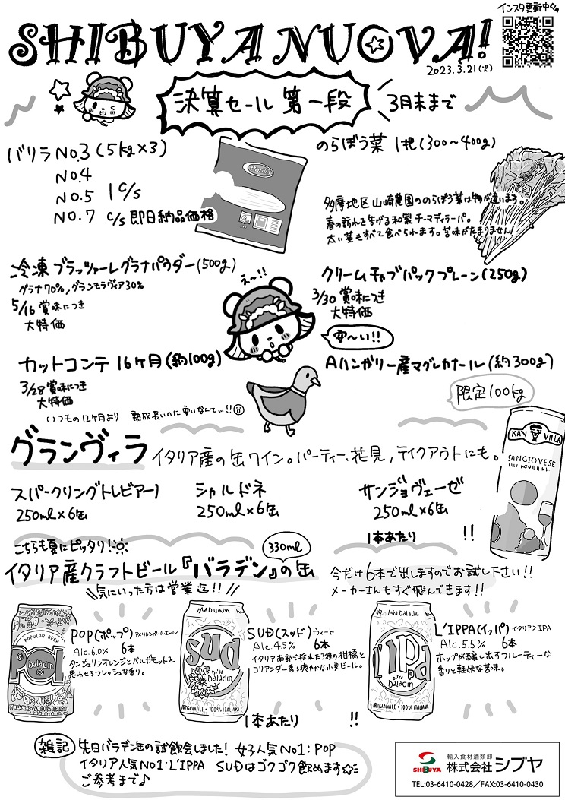 インスタ更新中
SHIBUYA NUOVA!
2023.3.21(火)
決算セール 第一段 3月末まで
バリラ NO.3 (5kg×3)
NO.4
NO.5 1c/s
NO.7 c/s 即日納品価格
のらぼう菜 1把(300〜400g)
多摩地区 山崎農園ののらぼう菜は
春の訪れを告げる和製チーマディラーパ。
太い茎もすべて食べられます。苦味がありません
冷凍 ブラッシャーレ グラナパウダー(500g)
グラナ70%,グランモラヴィア30%
5/16 賞味につき
大特価
え〜!!
クリームチャブパックプレーン(250g)
3/30 賞味につき
大特価
安〜い!!
カットコンテ 16ヶ月(約100g)
3/28 賞味につき
大特価
いつもの12ヶ月より 熟成長いのに安いなんて!!
Aハンガリー産マグレカナール(約300g)
限定100kg
グランヴィラ イタリア産の缶ワイン。パーティー、花見、テイクアウトにも。
SANGIOVESE
スパークリングトレビアーノ
250ml×6缶
シャルドネ
250ml×6缶
サンジョヴェーゼ
250ml×6缶
1本あたり !!
こちらも夏にピッタリ!
330ml
イタリア産クラフトビール『バラデン』の缶
今だけ6本で出しますのでお試し下さい!!
メーカーさんもすぐ飛んできます!!
気にいった方は営業迄!!
POP(ポップ)
Alc.6.0% 6本
SUD(スッド)
Alc.4.5% 6本
L'IPPA(イッパ) イタリアンIPA
Alc.5.5% 6本
ホップが醸し出すフルーティーな
香りと軽快な苦味。
baladin
1本あたり !!
雑記
先日バラデン缶の試飲会しました! 女子人気No1:POP
イタリア人気No1:L'IPPA SUDはゴクゴク飲めます☆
ご参考まで♪
SHIBUYA
輸入食材直送部
株式会社 シブヤ
TEL.03-6410-0428/FAX:03-6410-0430